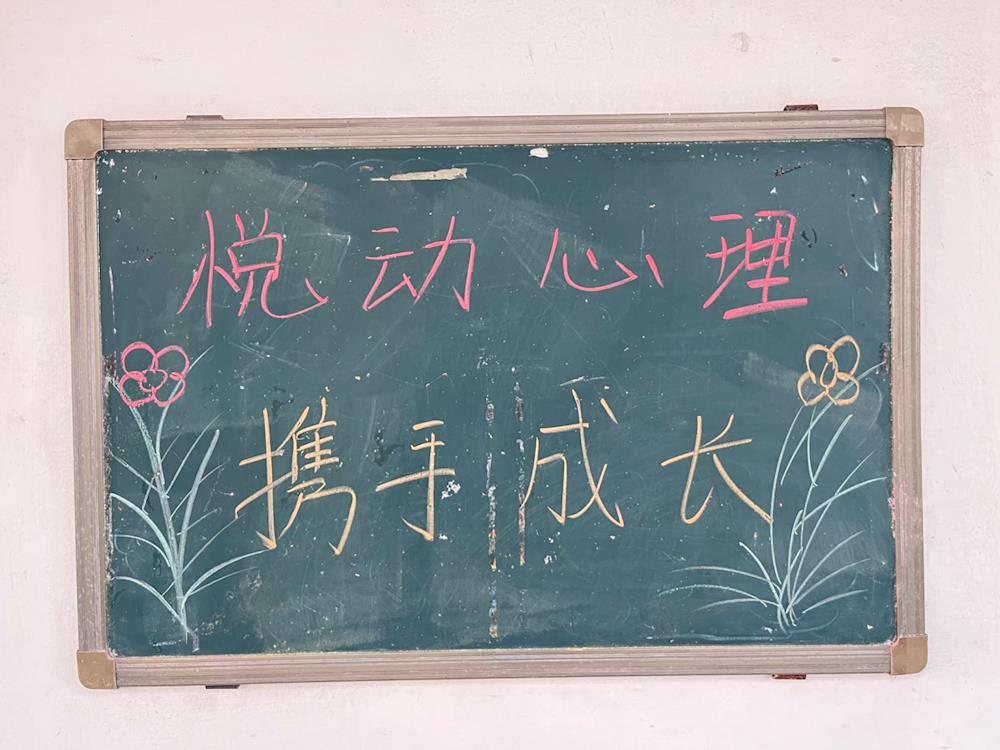 悦动心理
携手成长